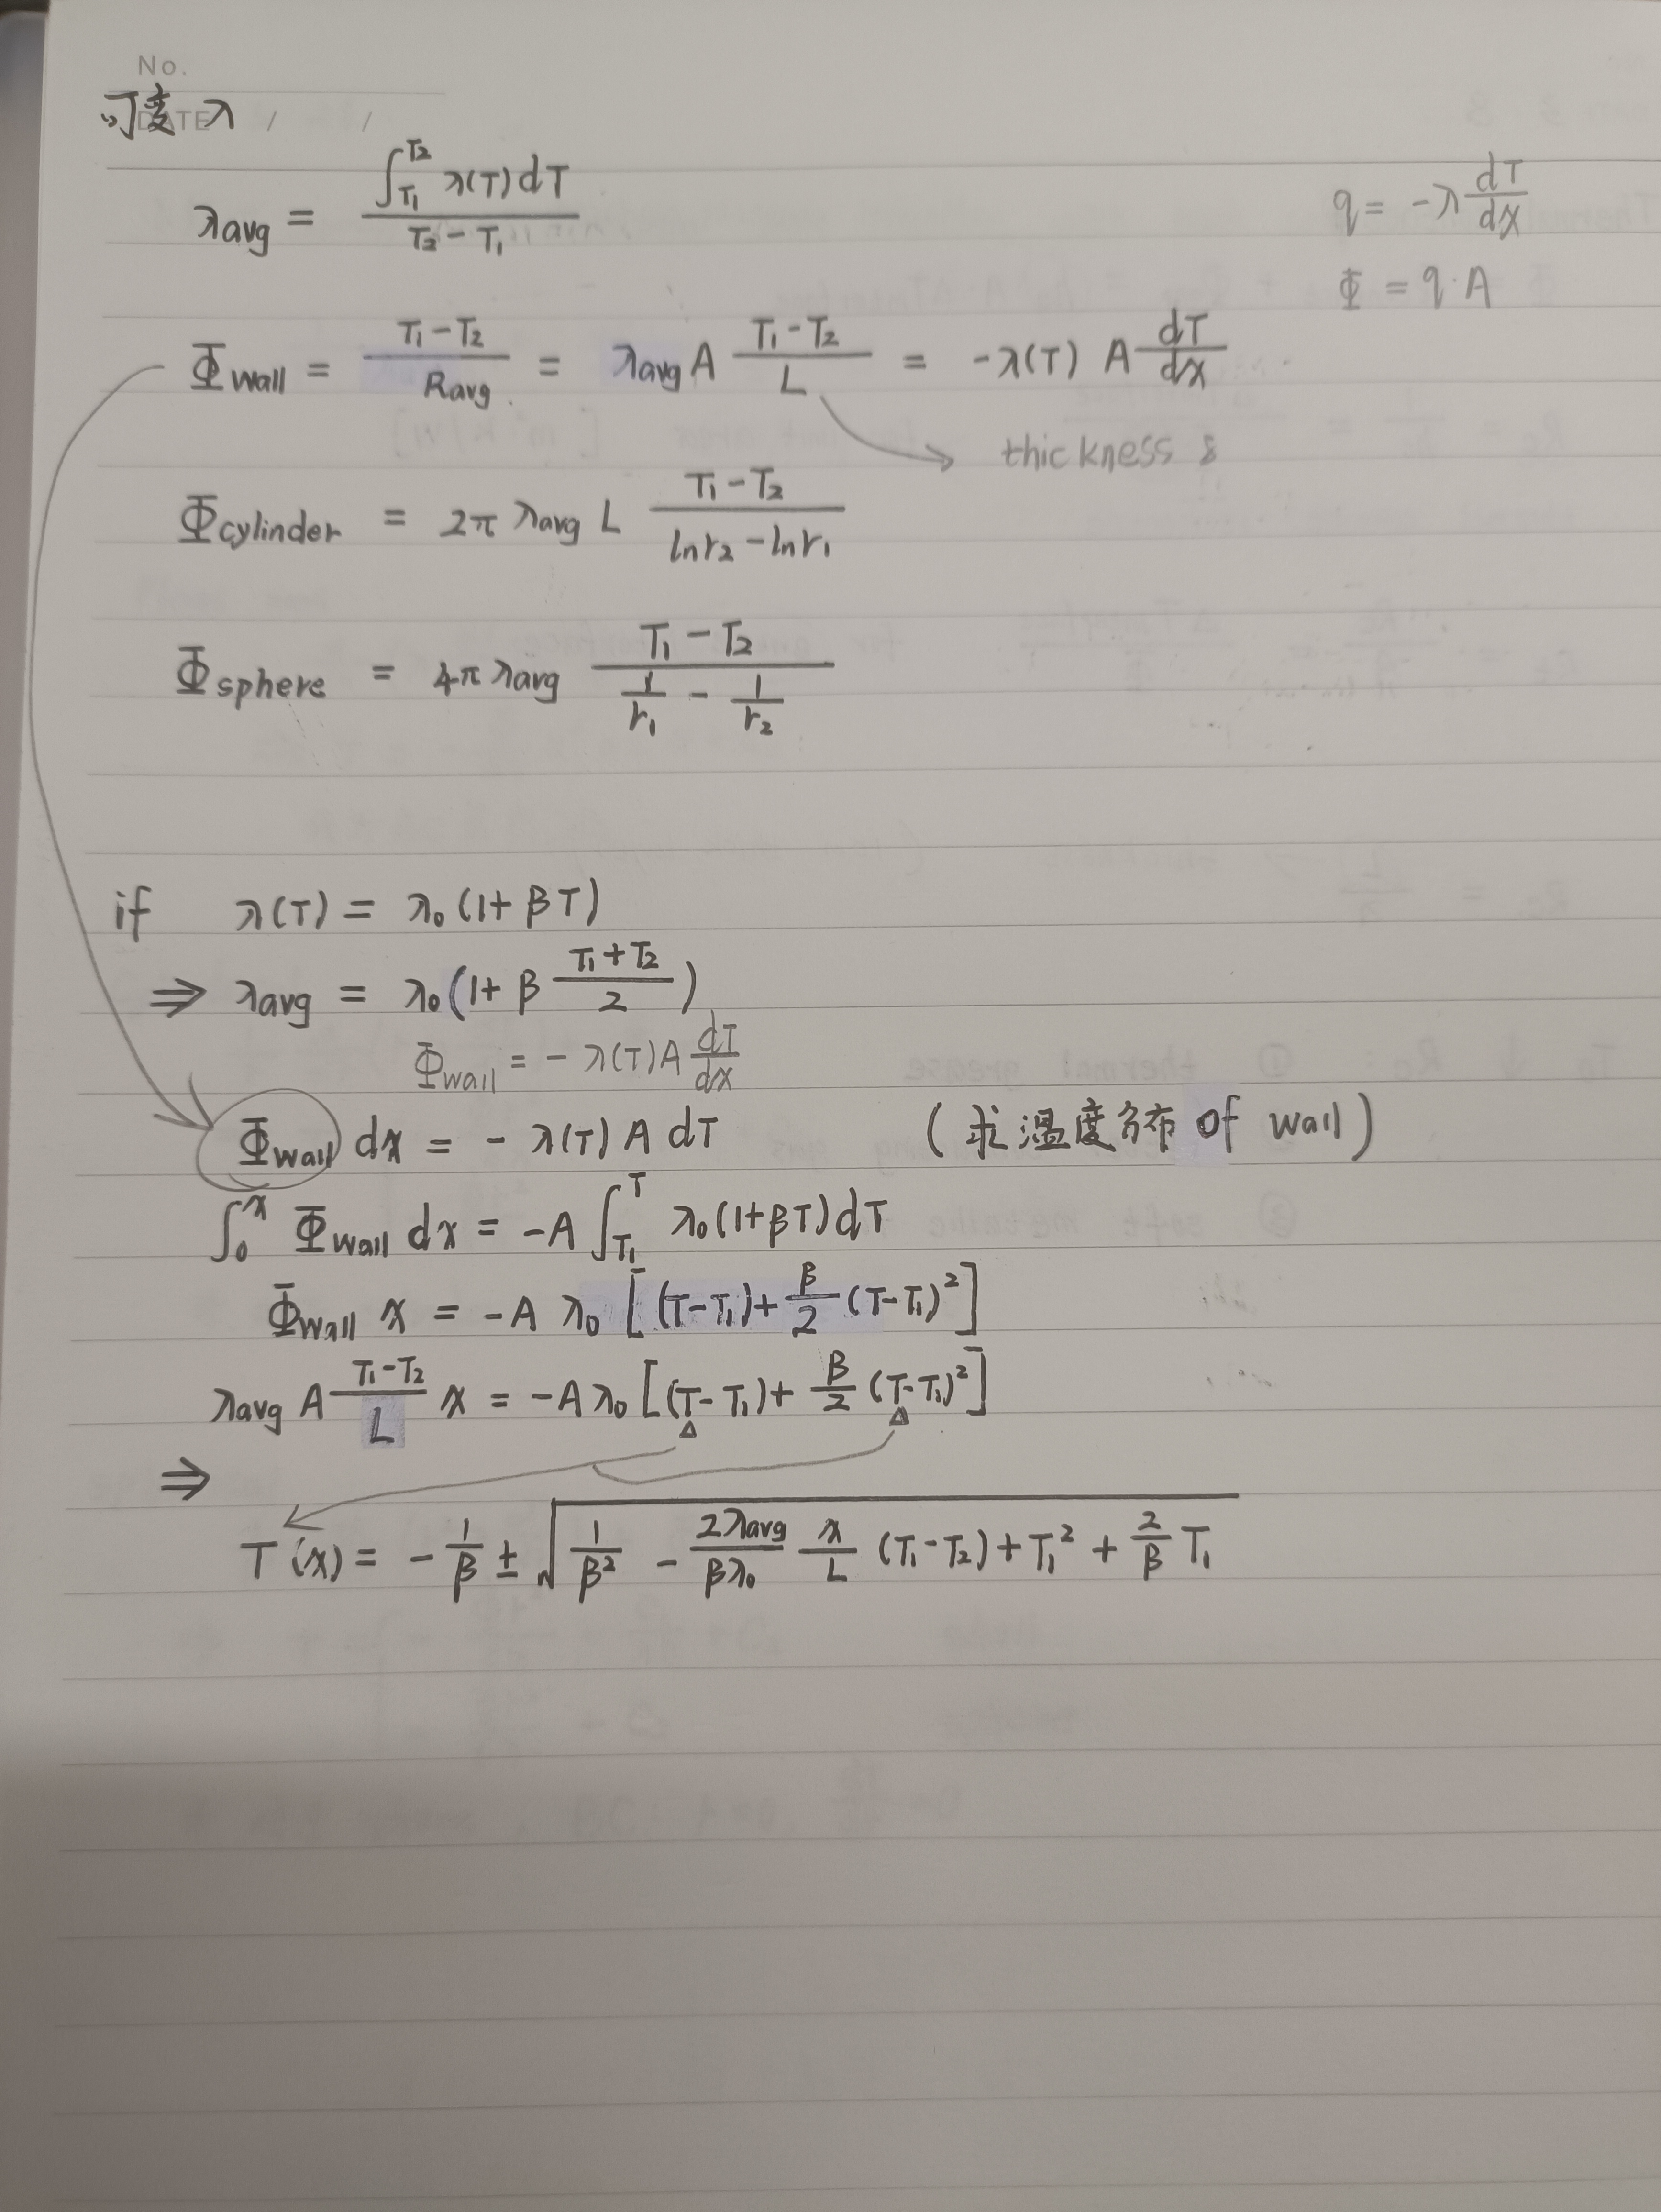 No.
DATE / /
可变 λ
λavg = ∫_{T₁}^{T₂} λ(T) dT / (T₂ - T₁)
q = -λ dT/dx
Φ = q · A
Φwall = (T₁ - T₂) / Ravg = λavg A (T₁ - T₂) / L = -λ(T) A dT/dx
thickness δ
Φcylinder = 2π λavg L (T₁ - T₂) / (ln r₂ - ln r₁)
Φsphere = 4π λavg (T₁ - T₂) / (1/r₁ - 1/r₂)
if λ(T) = λ₀ (1 + βT)
⇒ λavg = λ₀ (1 + β (T₁ + T₂)/2)
Φwall = - λ(T) A dT/dx
Φwall dx = - λ(T) A dT (求温度分布 of wall)
∫₀^x Φwall dx = -A ∫_{T₁}^{T} λ₀ (1+βT) dT
Φwall x = -A λ₀ [(T-T₁) + β/2 (T-T₁)²]
λavg A (T₁-T₂)/L x = -A λ₀ [(T-T₁) + β/2 (T-T₁)²]
Δ Δ
⇒
T(x) = - 1/β ± √(1/β² - 2λavg/(βλ₀) x/L (T₁-T₂) + T₁² + 2/β T₁)